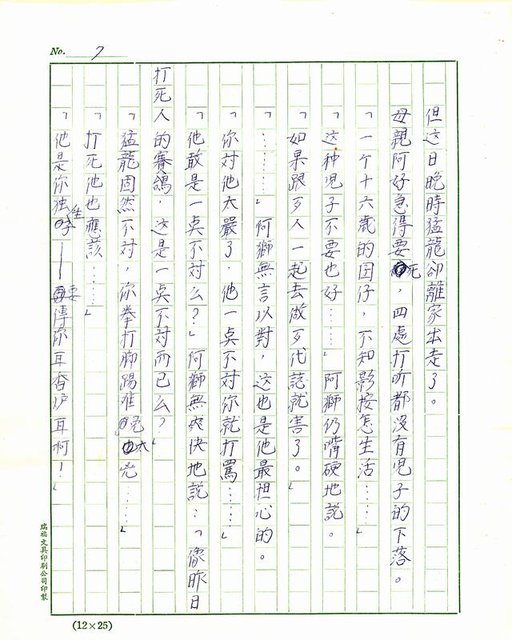 No. 7
但这日晚時猛龍卻離家出走了。
母親阿好急得要死，四處打听都沒有児子的下落。
「一个十六歲的囝仔，不知影按怎生活……」
「這种児子不要也好……」阿獅仍嘴硬地説。
「如果跟歹人一起去做歹代誌就害了。」
「………」阿獅無言以對，这也是他最担心的。
「你对他太嚴了，他一点不对你就打罵……」
「他敢是一点不对么？」阿獅無爽快地説：「像昨日
打死人的賽鴿，这是一点不对而已么？」
「猛龍固然不对，你拳打脚踢准
「打死他也應該……」
「他是你独生 ——要傳你耳香炉耳啊！」
瑞福文具印刷公司印製
(12×25)